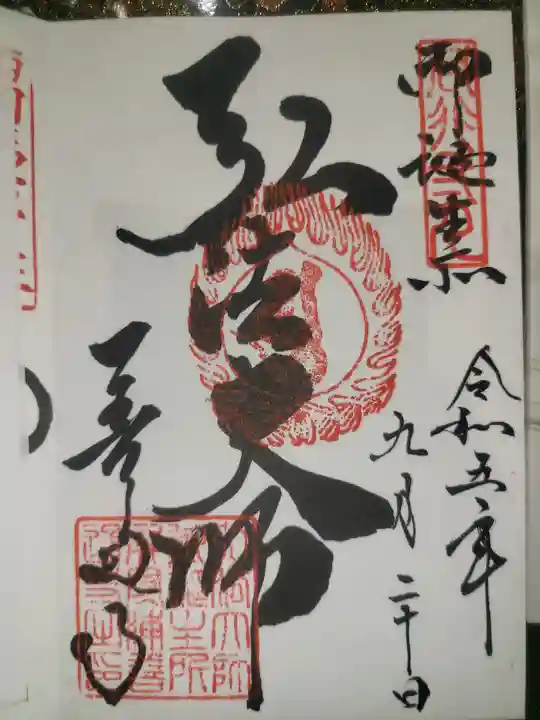 御誕生所
令和五年
九月二十日
弘法大師
善通寺